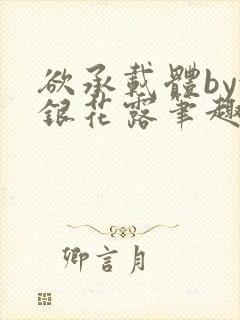 欲承載體by
銀花露筆趣
卿言月